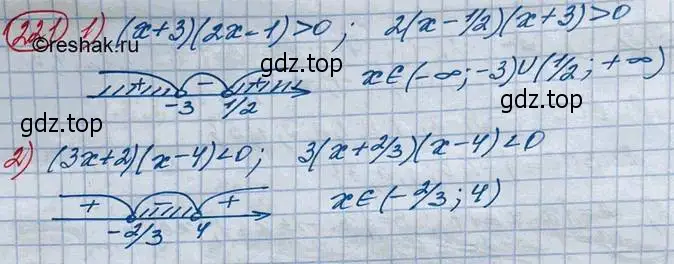 221 1) (x+3)(2x-1)>0; 2(x-1/2)(x+3)>0
©reshak.ru
gdz.top
gdz.top
+ - +
-3 1/2
x∈(-∞; -3)∪(1/2; +∞)
gdz.top
2) (3x+2)(x-4)<0; 3(x+2/3)(x-4)<0
+ - +
-2/3 4
x∈(-2/3; 4)
gdz.top